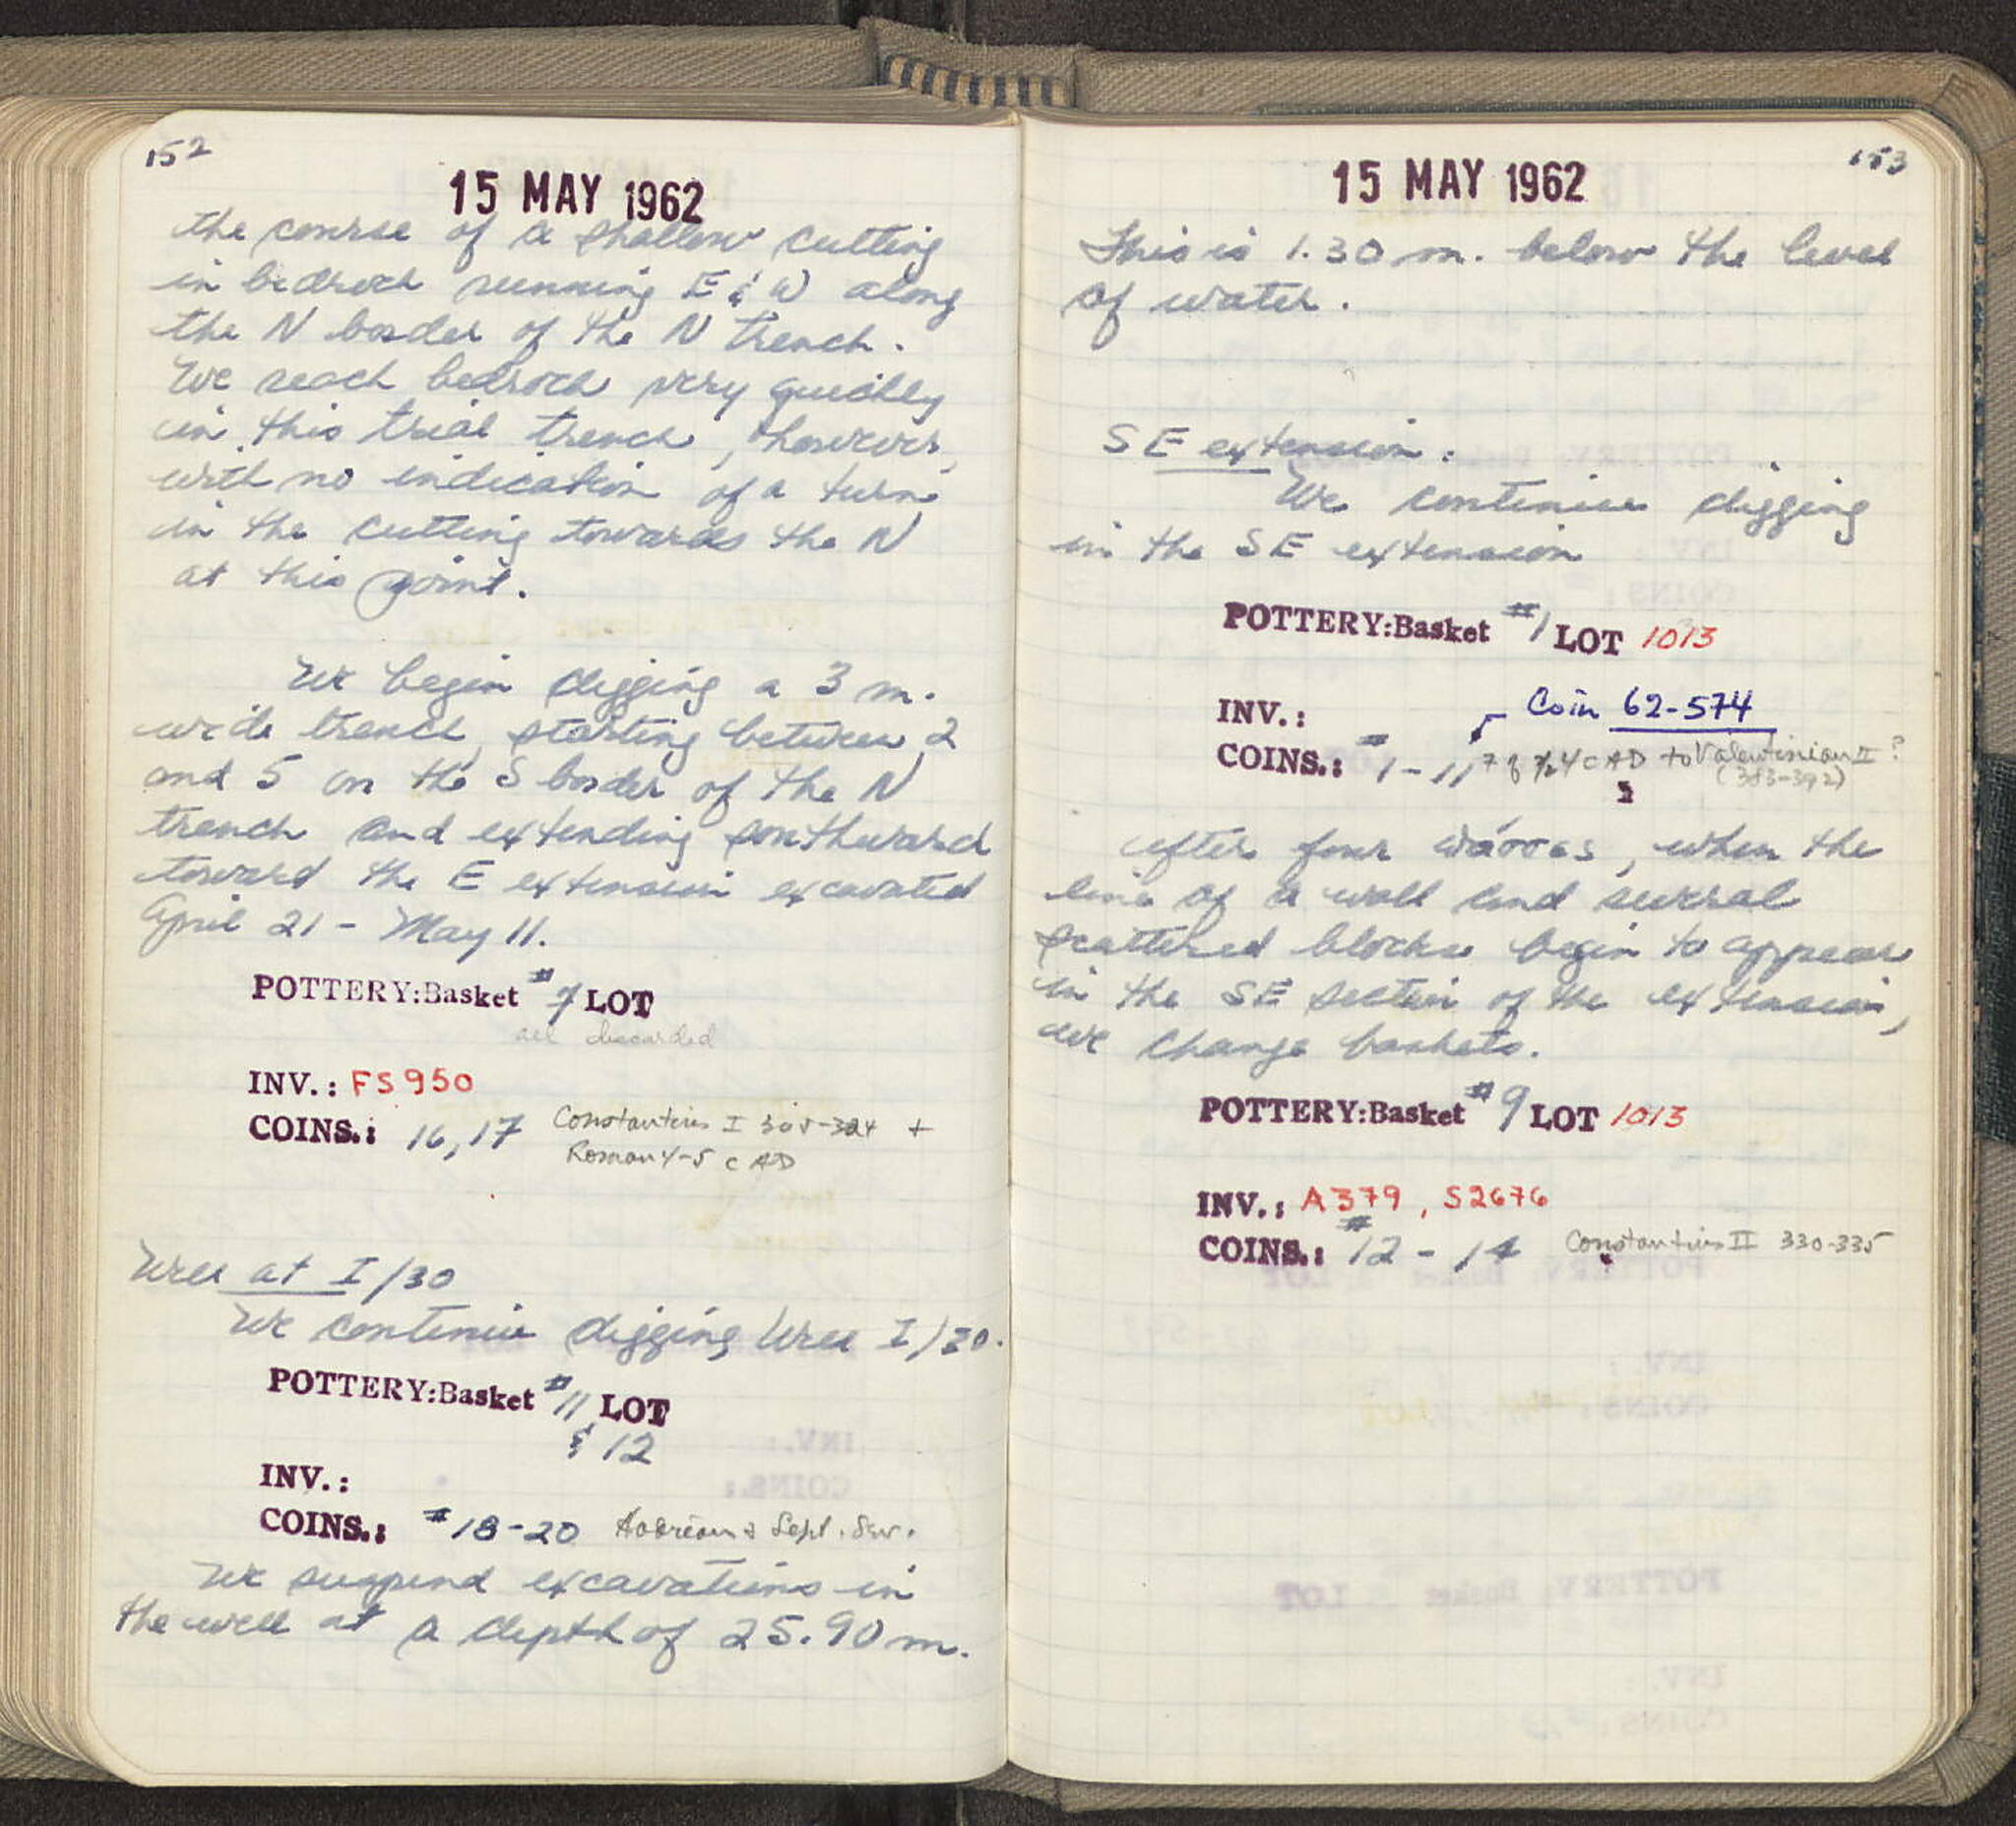 152
15 MAY 1962
the course of a shallow cutting
in bedrock running E & W along
the N border of the N trench.
We reach bedrock very quickly
in this trial trench, however,
with no indication of a turn
in the cutting towards the N
at this point.
We begin digging a 3 m.
wide trench, starting between 2
and 5 on the S border of the N
trench and extending southward
toward the E extension excavated
April 21 - May 11.
POTTERY:Basket #7 LOT
all discarded
INV.: FS 950
COINS.: 16, 17 Constantius I 305-324 +
Roman 4-5 c AD
Well at I/30
We continue digging Well I/30.
POTTERY:Basket #11 LOT
& 12
INV.:
COINS.: #18-20 Hadrian & Sept. Sev.
We suspend excavations in
the well at a depth of 25.90 m.
153
15 MAY 1962
This is 1.30 m. below the level
of water.
SE extension:
We continue digging
in the SE extension
POTTERY:Basket #1 LOT 1013
INV.: Coin 62-574
COINS.: #1-11 4 c AD to Valentinian II ?
(383-392)
after four , when the
line of a wall and several
scattered blocks begin to appear
in the SE section of the extension,
we change baskets.
POTTERY:Basket #9 LOT 1013
INV.: A 379, S2676
COINS.: #12 - 14 Constantius II 330-335